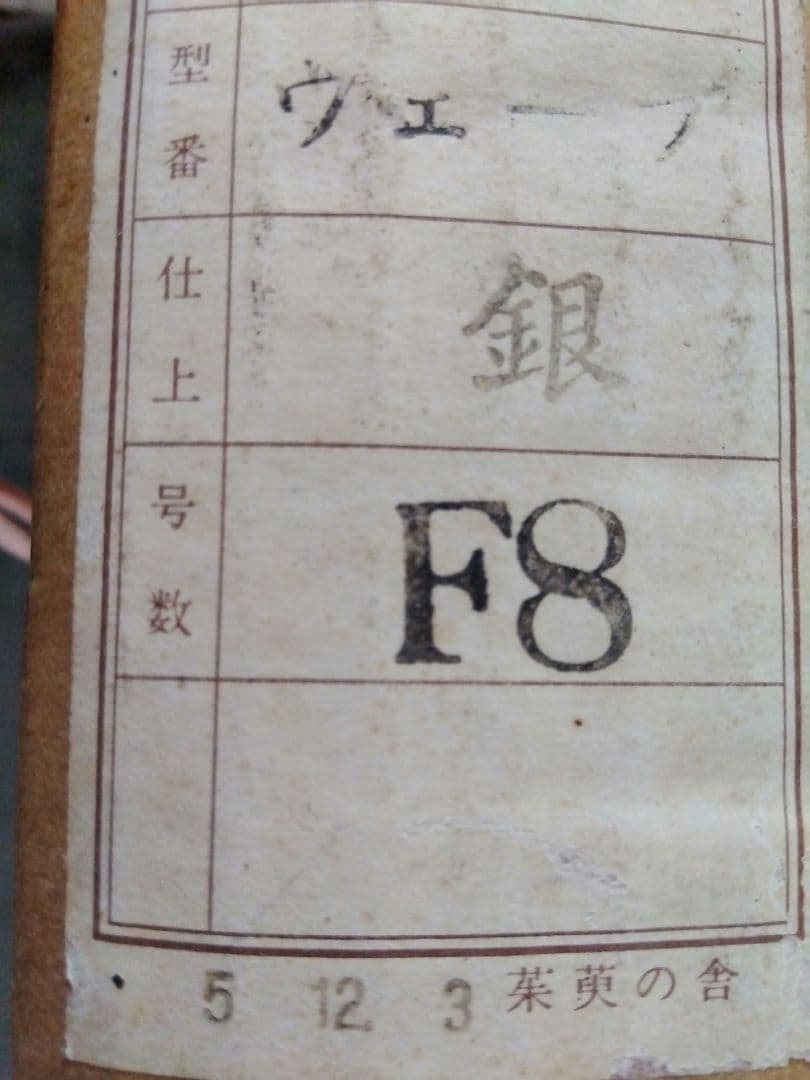 型番 ウェーブ
仕上 銀
号数 F8
5 12 3 茱萸の舎